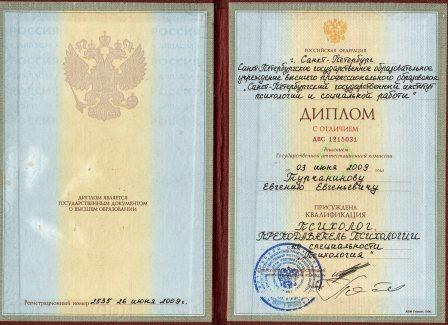 ДИПЛОМ ЯВЛЯЕТСЯ
ГОСУДАРСТВЕННЫМ ДОКУМЕНТОМ
О ВЫСШЕМ ОБРАЗОВАНИИ
Регистрационный номер 2535 26 июня 2009 г.
РОССИЙСКАЯ ФЕДЕРАЦИЯ
г. Санкт-Петербург
Санкт-Петербургское государственное образовательное
учреждение высшего профессионального образования
"Санкт-Петербургский государственный институт
психологии и социальной работы"
ДИПЛОМ
С ОТЛИЧИЕМ
ДВС 1215031
Решением
Государственной аттестационной комиссии
от 03 июня 2009 года
Турчанинову
Евгению Евгеньевичу
ПРИСУЖДЕНА
КВАЛИФИКАЦИЯ
ПСИХОЛОГ.
ПРЕПОДАВАТЕЛЬ ПСИХОЛОГИИ
по специальности
"Психология"